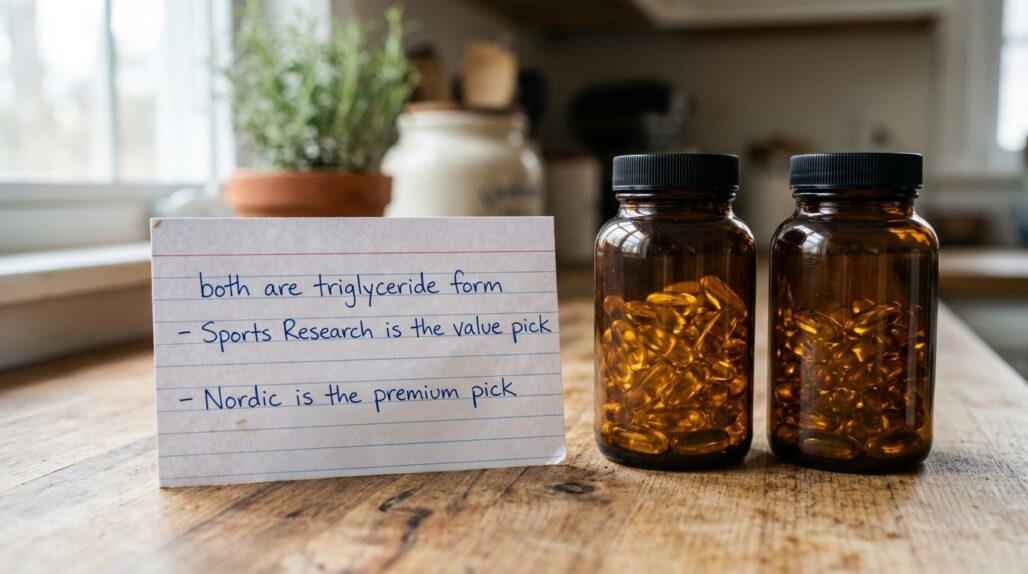 both are triglyceride form
- Sports Research is the value pick
- Nordic is the premium pick